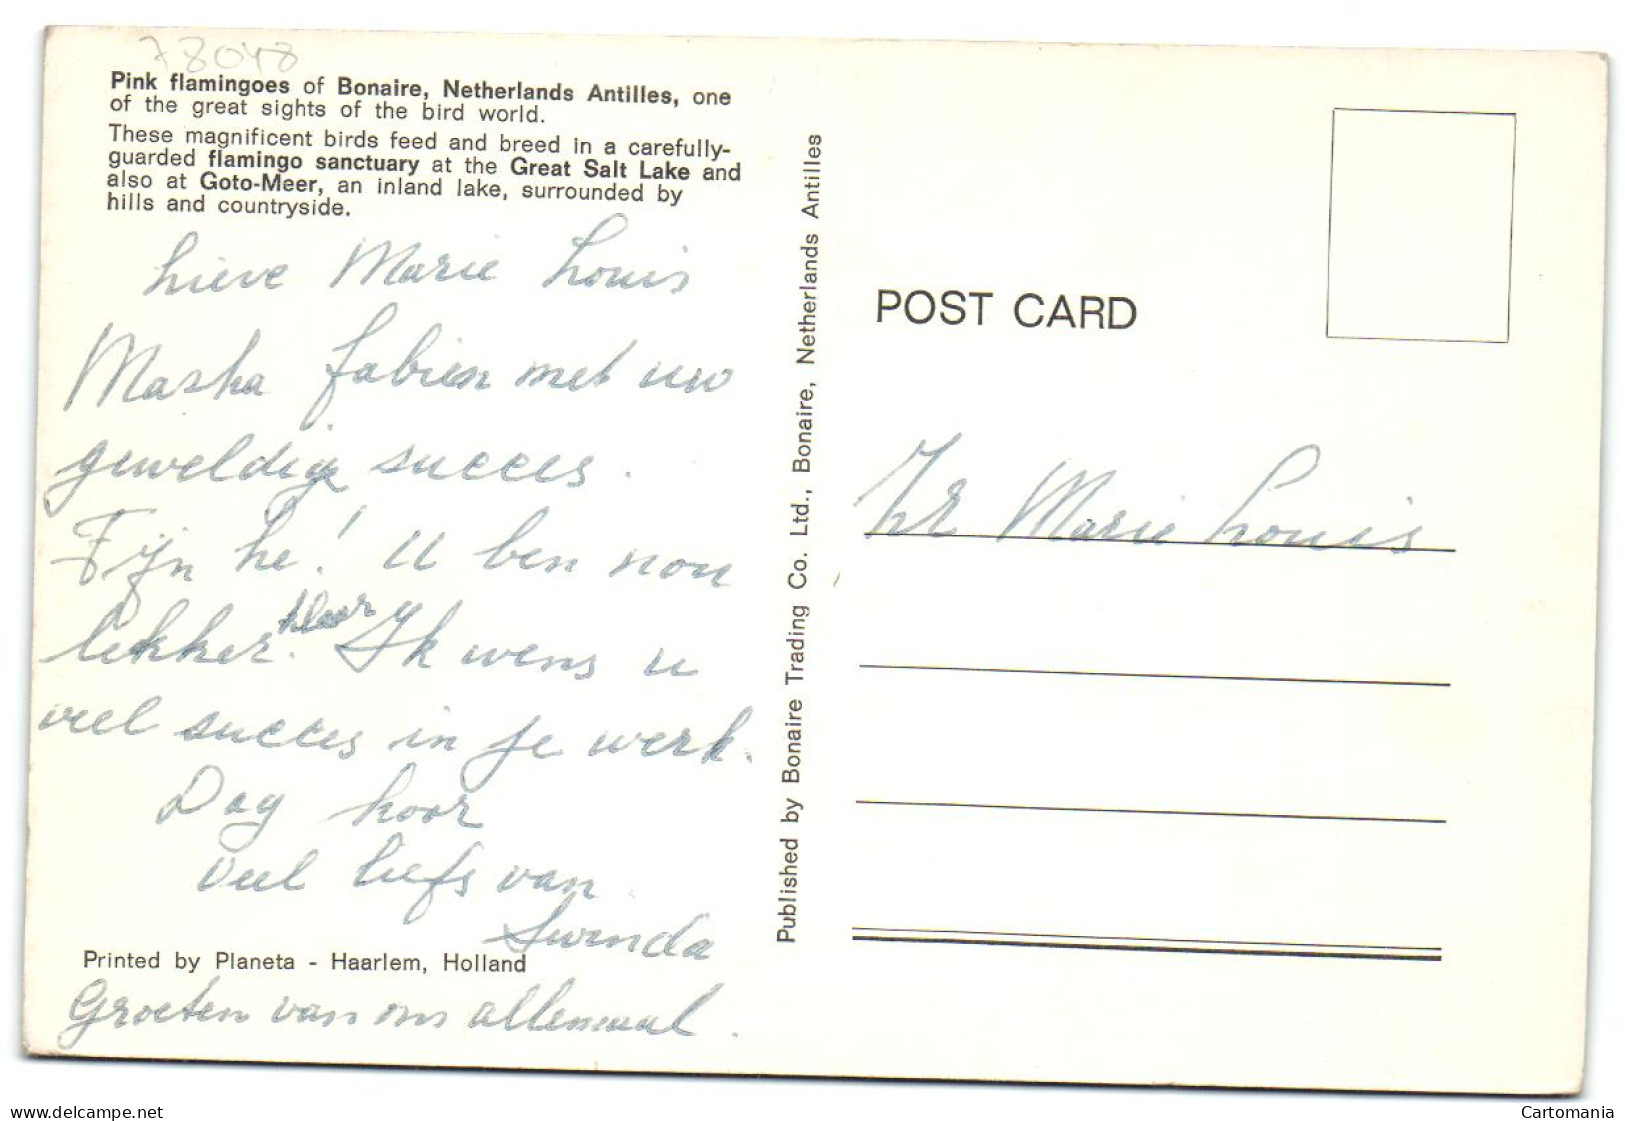 78048
Pink flamingoes of Bonaire, Netherlands Antilles, one
of the great sights of the bird world.
These magnificent birds feed and breed in a carefully-
guarded flamingo sanctuary at the Great Salt Lake and
also at Goto-Meer, an inland lake, surrounded by
hills and countryside.
Lieve Marie Louis
Masha fabien met uw
geweldig succes.
Fijn he! U ben nou
lekker klaar. Ik wens u
veel succes in je werk.
Dag hoor
veel liefs van
Swinda
Printed by Planeta - Haarlem, Holland
Groeten van ons allemaal.
Published by Bonaire Trading Co. Ltd., Bonaire, Netherlands Antilles
POST CARD
Marie Louis
www.delcampe.net
Cartomania